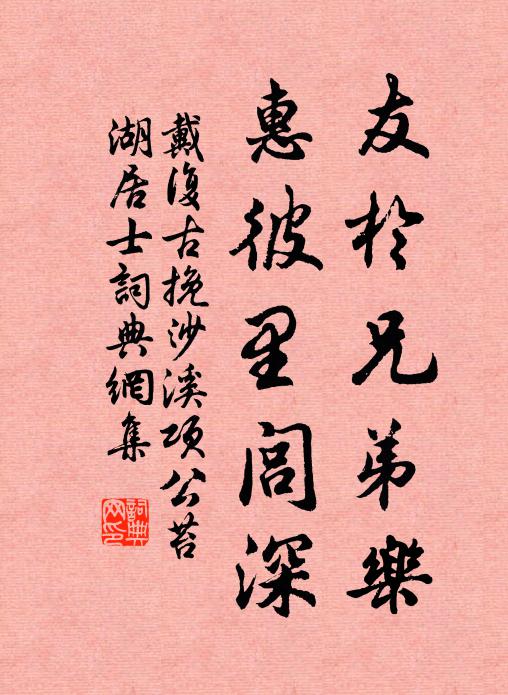 友於兄弟樂
惠彼里閭深
戴復古挽沙溪項公苔
湖居士詞典網集
詞典
网印